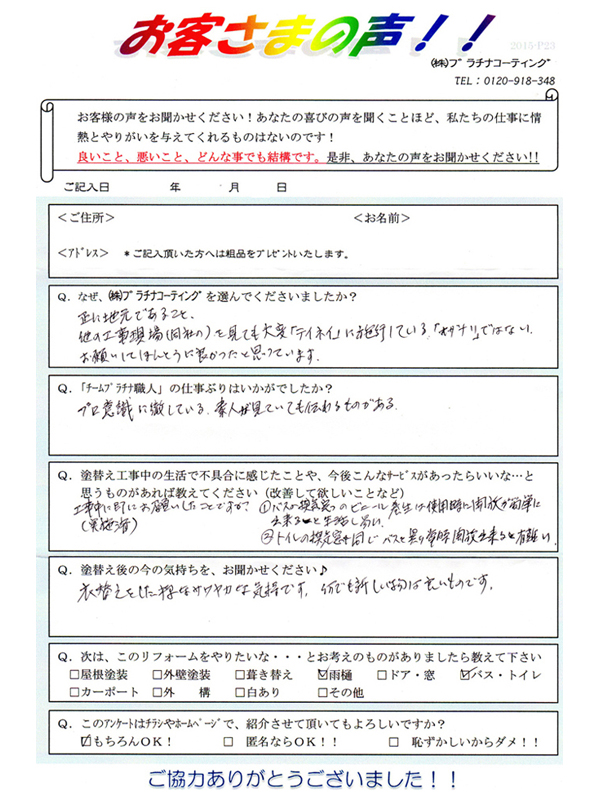 お客さまの声！！
2015-P23
㈱プラチナコーティング
TEL：0120-918-348
お客様の声をお聞かせください！あなたの喜びの声を聞くことほど、私たちの仕事に情
熱とやりがいを与えてくれるものはないのです！
良いこと、悪いこと、どんな事でも結構です。是非、あなたの声をお聞かせください!!
ご記入日　　年　　月　　日
＜ご住所＞　　＜お名前＞
＜アドレス＞　＊ご記入頂いた方へは粗品をプレゼントいたします。
Q．なぜ、㈱プラチナコーティングを選んでくださいましたか？
正に地元であること、
他の工事現場（同社の）を見ても大変「テイネイ」に施行している。「オザナリ」ではない。
お願いしてほんとうに良かったと思っています。
Q．「チームプラチナ職人」の仕事ぶりはいかがでしたか？
プロ意識に徹している。素人が見ていても伝わるものがある。
Q．塗替え工事中の生活で不具合に感じたことや、今後こんなサービスがあったらいいな…と
思うものがあれば教えてください（改善して欲しいことなど）
工事中に即にお願いしたことですが、①バスの換気窓のビニール養生は使用時に開放が簡単に
（実施済）　出来ると生活し易い。
②トイレの換気窓も同じ バスと異り常時開放出来ると有難い。
Q．塗替え後の今の気持ちを、お聞かせください♪
衣替えをした様なサワヤカな気持です。何でも新しい物は良いものです。
Q．次は、このリフォームをやりたいな・・・とお考えのものがありましたら教えて下さい
□屋根塗装　□外壁塗装　□葺き替え　☑雨樋　□ドア・窓　☑バス・トイレ
□カーポート　□外　構　□白あり　□その他
Q．このアンケートはチラシやホームページで、紹介させて頂いてもよろしいですか？
☑もちろんOK！　□　匿名ならOK！！　□　恥ずかしいからダメ！！
ご協力ありがとうございました！！